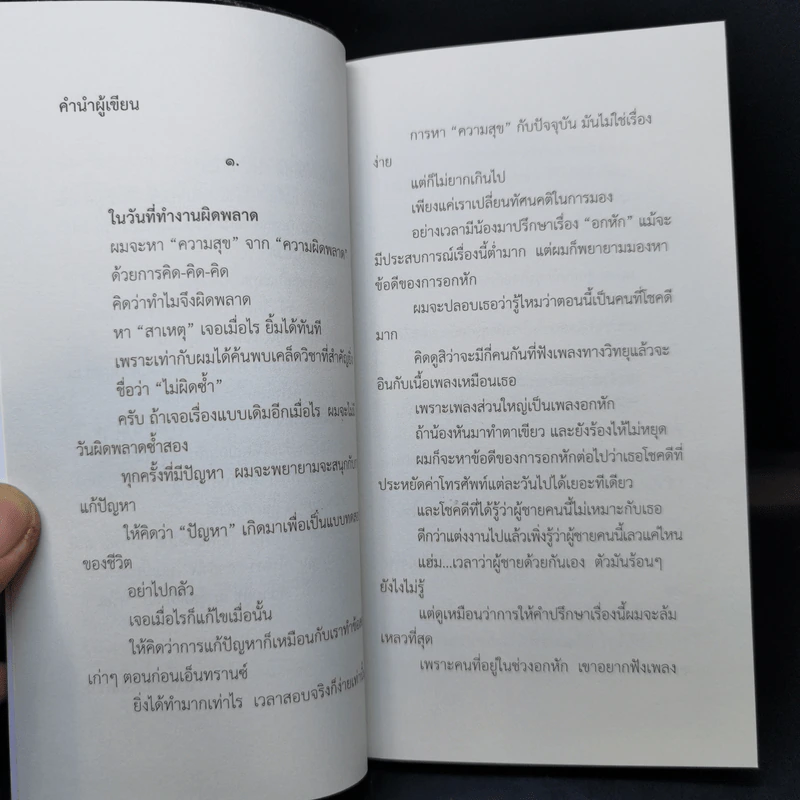 คำนำผู้เขียน
๑.
ในวันที่ทำงานผิดพลาด
ผมจะหา “ความสุข” จาก “ความผิดพลาด”
ด้วยการคิด-คิด-คิด
คิดว่าทำไมจึงผิดพลาด
หา “สาเหตุ” เจอเมื่อไร ยิ้มได้ทันที
เพราะเท่ากับผมได้ค้นพบเคล็ดวิชาที่สำคัญ
ชื่อว่า “ไม่ผิดซ้ำ”
ครับ ถ้าเจอเรื่องแบบเดิมอีกเมื่อไร ผมจะไม่มี
วันผิดพลาดซ้ำสอง
ทุกครั้งที่มีปัญหา ผมจะพยายามจะสนุกกับ
แก้ปัญหา
ให้คิดว่า “ปัญหา” เกิดมาเพื่อเป็นแบบทดสอบ
ของชีวิต
อย่าไปกลัว
เจอเมื่อไรก็แก้ไขเมื่อนั้น
ให้คิดว่าการแก้ปัญหาก็เหมือนกับเราทำข้อ
เก่าๆ ตอนก่อนเอ็นทรานซ์
ยิ่งได้ทำมากเท่าไร เวลาสอบจริงก็ง่ายเท่านั้น
การหา “ความสุข” กับปัจจุบัน มันไม่ใช่เรื่อง
ง่าย
แต่ก็ไม่ยากเกินไป
เพียงแค่เราเปลี่ยนทัศนคติในการมอง
อย่างเวลามีน้องมาปรึกษาเรื่อง “อกหัก” แม้จะ
มีประสบการณ์เรื่องนี้ต่ำมาก แต่ผมก็พยายามมองหา
ข้อดีของการอกหัก
ผมจะปลอบเธอว่ารู้ไหมว่าตอนนี้เป็นคนที่โชคดี
มาก
คิดดูสิว่าจะมีกี่คนกันที่ฟังเพลงทางวิทยุแล้วจะ
อินกับเนื้อเพลงเหมือนเธอ
เพราะเพลงส่วนใหญ่เป็นเพลงอกหัก
ถ้าน้องหันมาทำตาเขียว และยังร้องไห้ไม่หยุด
ผมก็จะหาข้อดีของการอกหักต่อไปว่าเธอโชคดีที่
ประหยัดค่าโทรศัพท์แต่ละวันไปได้เยอะทีเดียว
และโชคดีที่ได้รู้ว่าผู้ชายคนนี้ไม่เหมาะกับเธอ
ดีกว่าแต่งงานไปแล้วเพิ่งรู้ว่าผู้ชายคนนี้เลวแค่ไหน
แฮ่ม...เวลาว่าผู้ชายด้วยกันเอง ตัวมันร้อนๆ
ยังไงไม่รู้
แต่ดูเหมือนว่าการให้คำปรึกษาเรื่องนี้ผมจะล้ม
เหลวที่สุด
เพราะคนที่อยู่ในช่วงอกหัก เขาอยากฟังเพลง